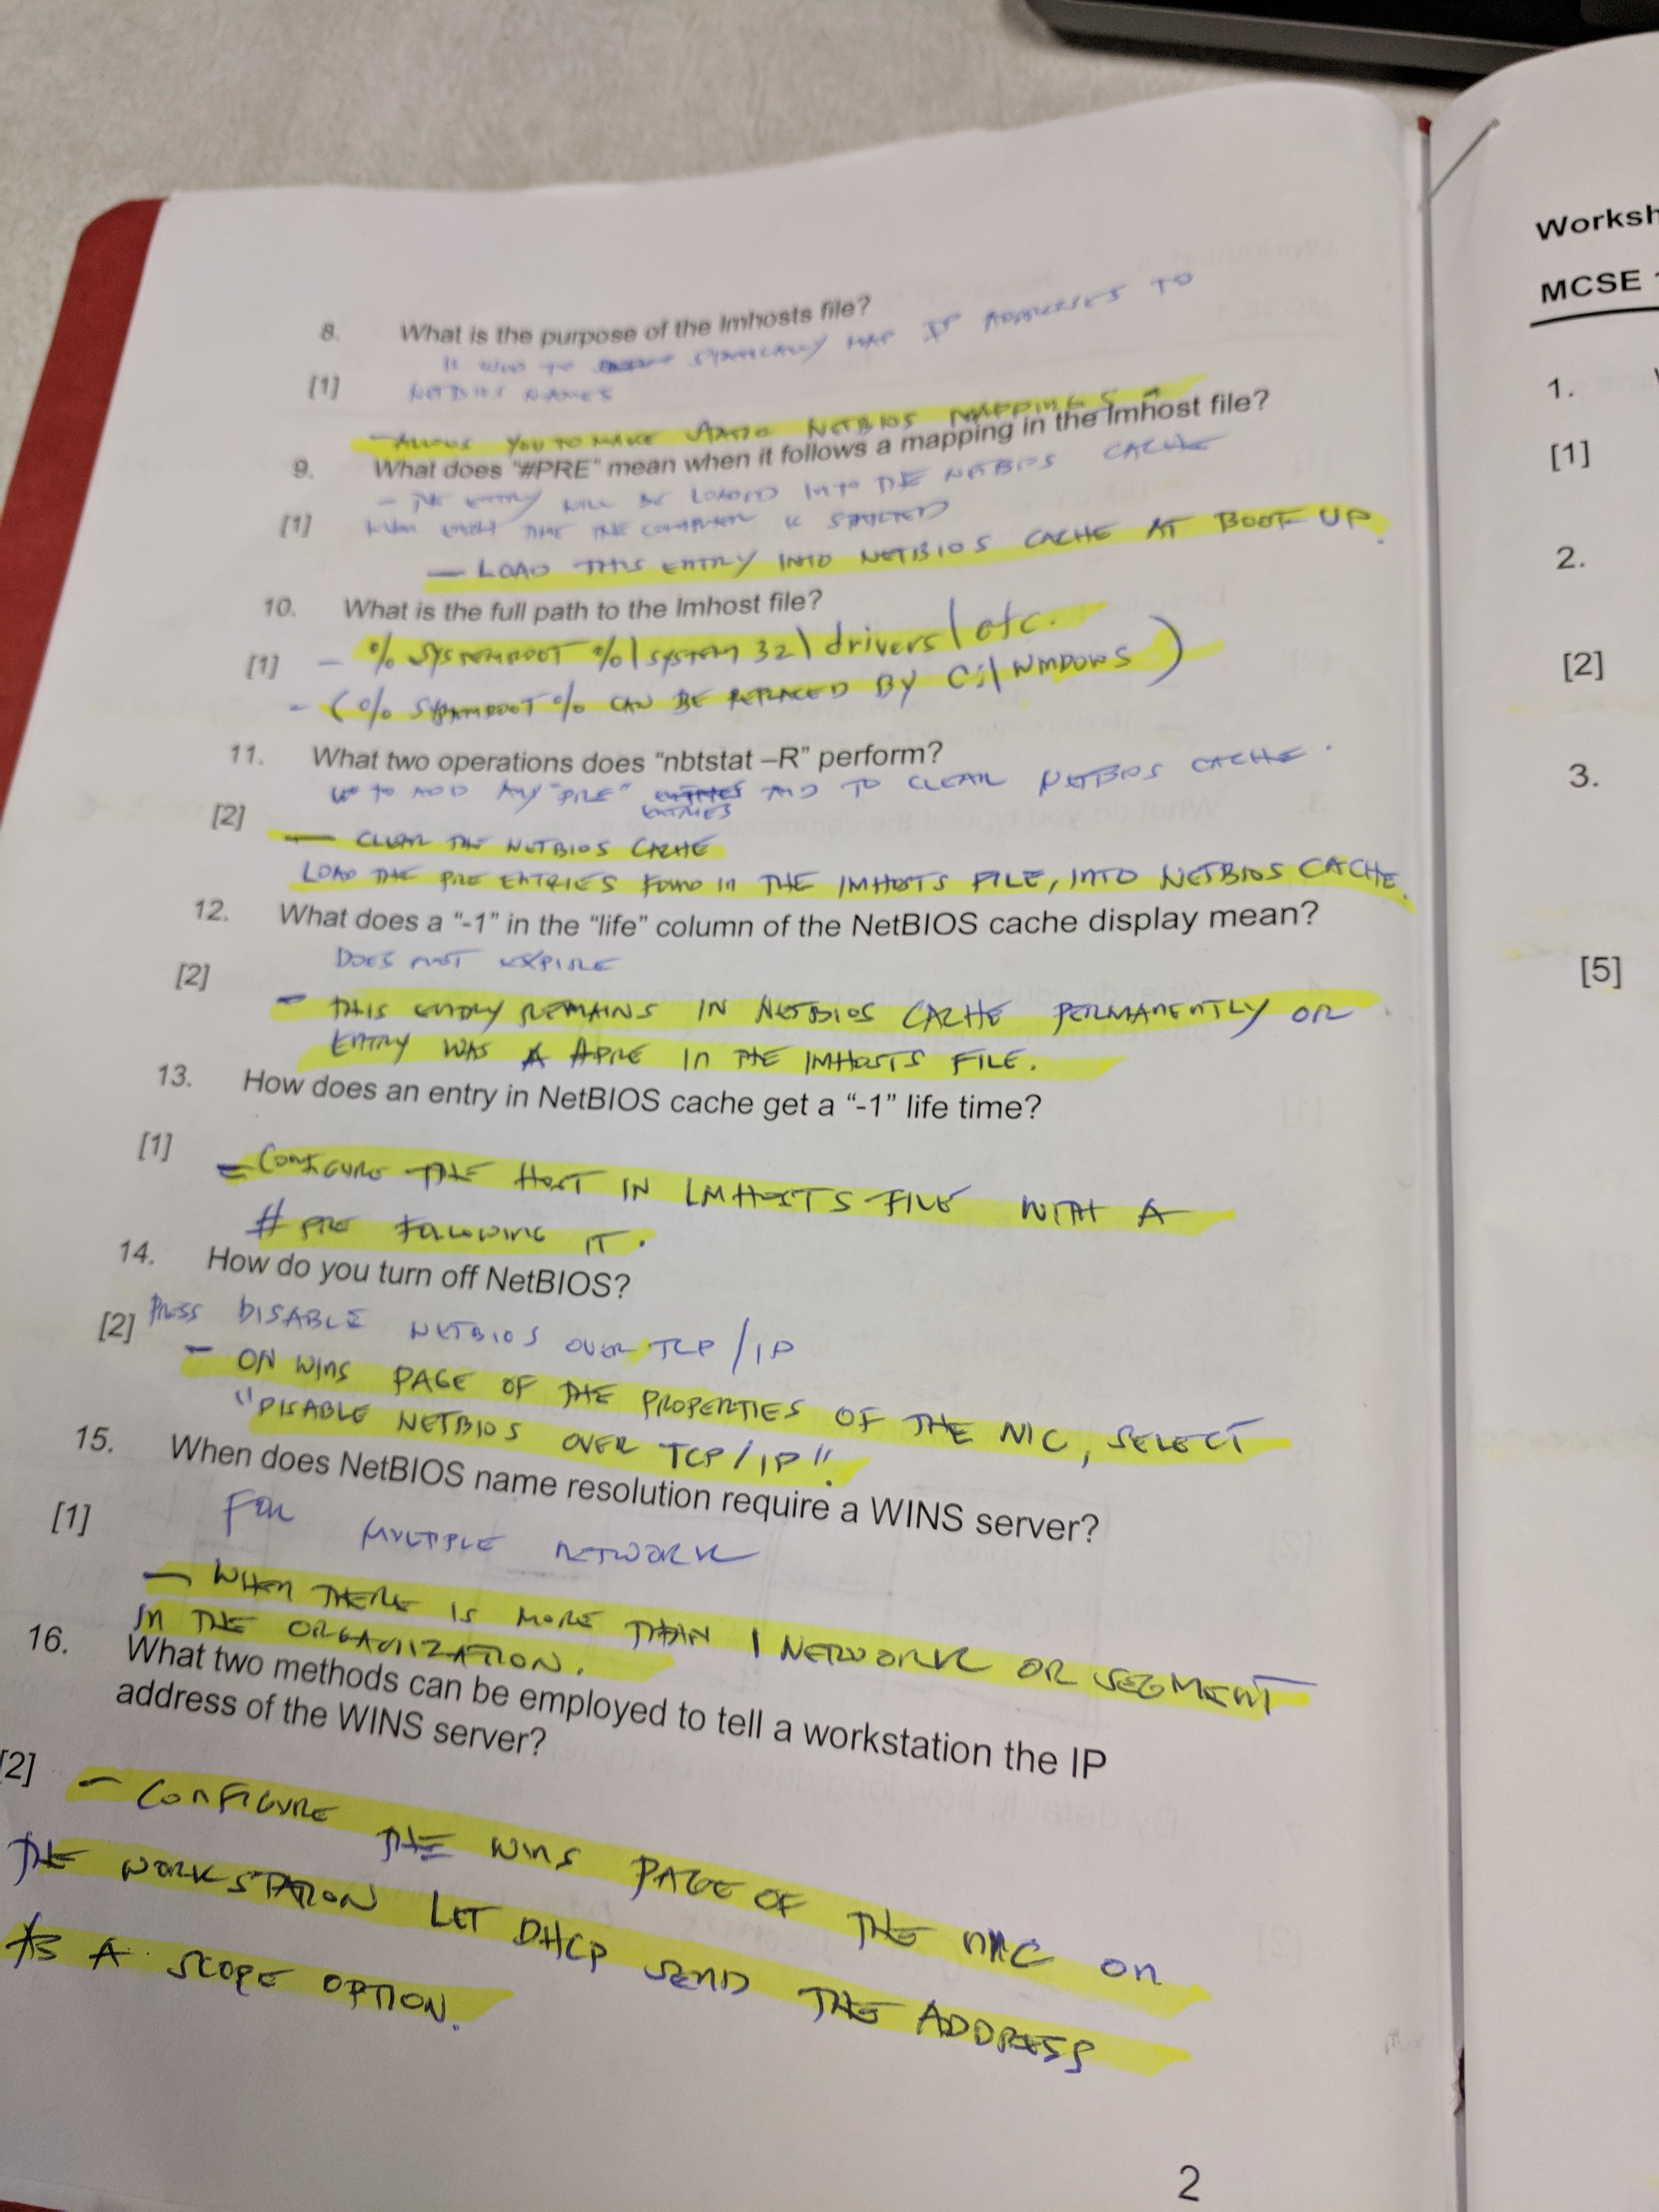 8. What is the purpose of the lmhosts file?
IS USED TO STATICALLY MAP IP ADDRESSES TO
[1] NETBIOS NAMES
- ALLOWS YOU TO MAKE STATIC NETBIOS MAPPINGS
9. What does "#PRE" mean when it follows a mapping in the lmhost file?
- THE ENTRY WILL BE LOADED INTO THE NETBIOS CACHE
[1] WHEN EACH TIME THE COMPUTER IS STARTED
- LOAD THIS ENTRY INTO NETBIOS CACHE AT BOOT UP.
10. What is the full path to the lmhost file?
[1] - % SYSTEMROOT %\ SYSTEM 32\ drivers\ etc.
- (% SYSTEMROOT % CAN BE REPLACED BY C:\ WINDOWS)
11. What two operations does "nbtstat –R" perform?
TO ADD ANY "PRE" ENTRIES AND TO CLEAR NETBIOS CACHE.
[2] - CLEAR THE NETBIOS CACHE
LOAD THE PRE ENTRIES FOUND IN THE IMHOSTS FILE, INTO NETBIOS CACHE.
12. What does a "-1" in the "life" column of the NetBIOS cache display mean?
DOES NOT EXPIRE
[2] - THIS ENTRY REMAINS IN NETBIOS CACHE PERMANENTLY OR
ENTRY WAS A #PRE IN THE IMHOSTS FILE.
13. How does an entry in NetBIOS cache get a "-1" life time?
[1] - CONFIGURE THE HOST IN LMHOSTS FILE WITH A
# PRE FOLLOWING IT.
14. How do you turn off NetBIOS?
[2] PRESS DISABLE NETBIOS OVER TCP/IP
- ON WINS PAGE OF THE PROPERTIES OF THE NIC, SELECT
"DISABLE NETBIOS OVER TCP/IP".
15. When does NetBIOS name resolution require a WINS server?
[1] FOR MULTIPLE NETWORK
- WHEN THERE IS MORE THAN 1 NETWORK OR SEGMENT
IN THE ORGANIZATION.
16. What two methods can be employed to tell a workstation the IP
address of the WINS server?
[2] - CONFIGURE THE WINS PAGE OF THE NIC ON
THE WORKSTATION LET DHCP SEND THE ADDRESS
AS A SCOPE OPTION.
2
Worksh
MCSE
1.
[1]
2.
[2]
3.
[5]